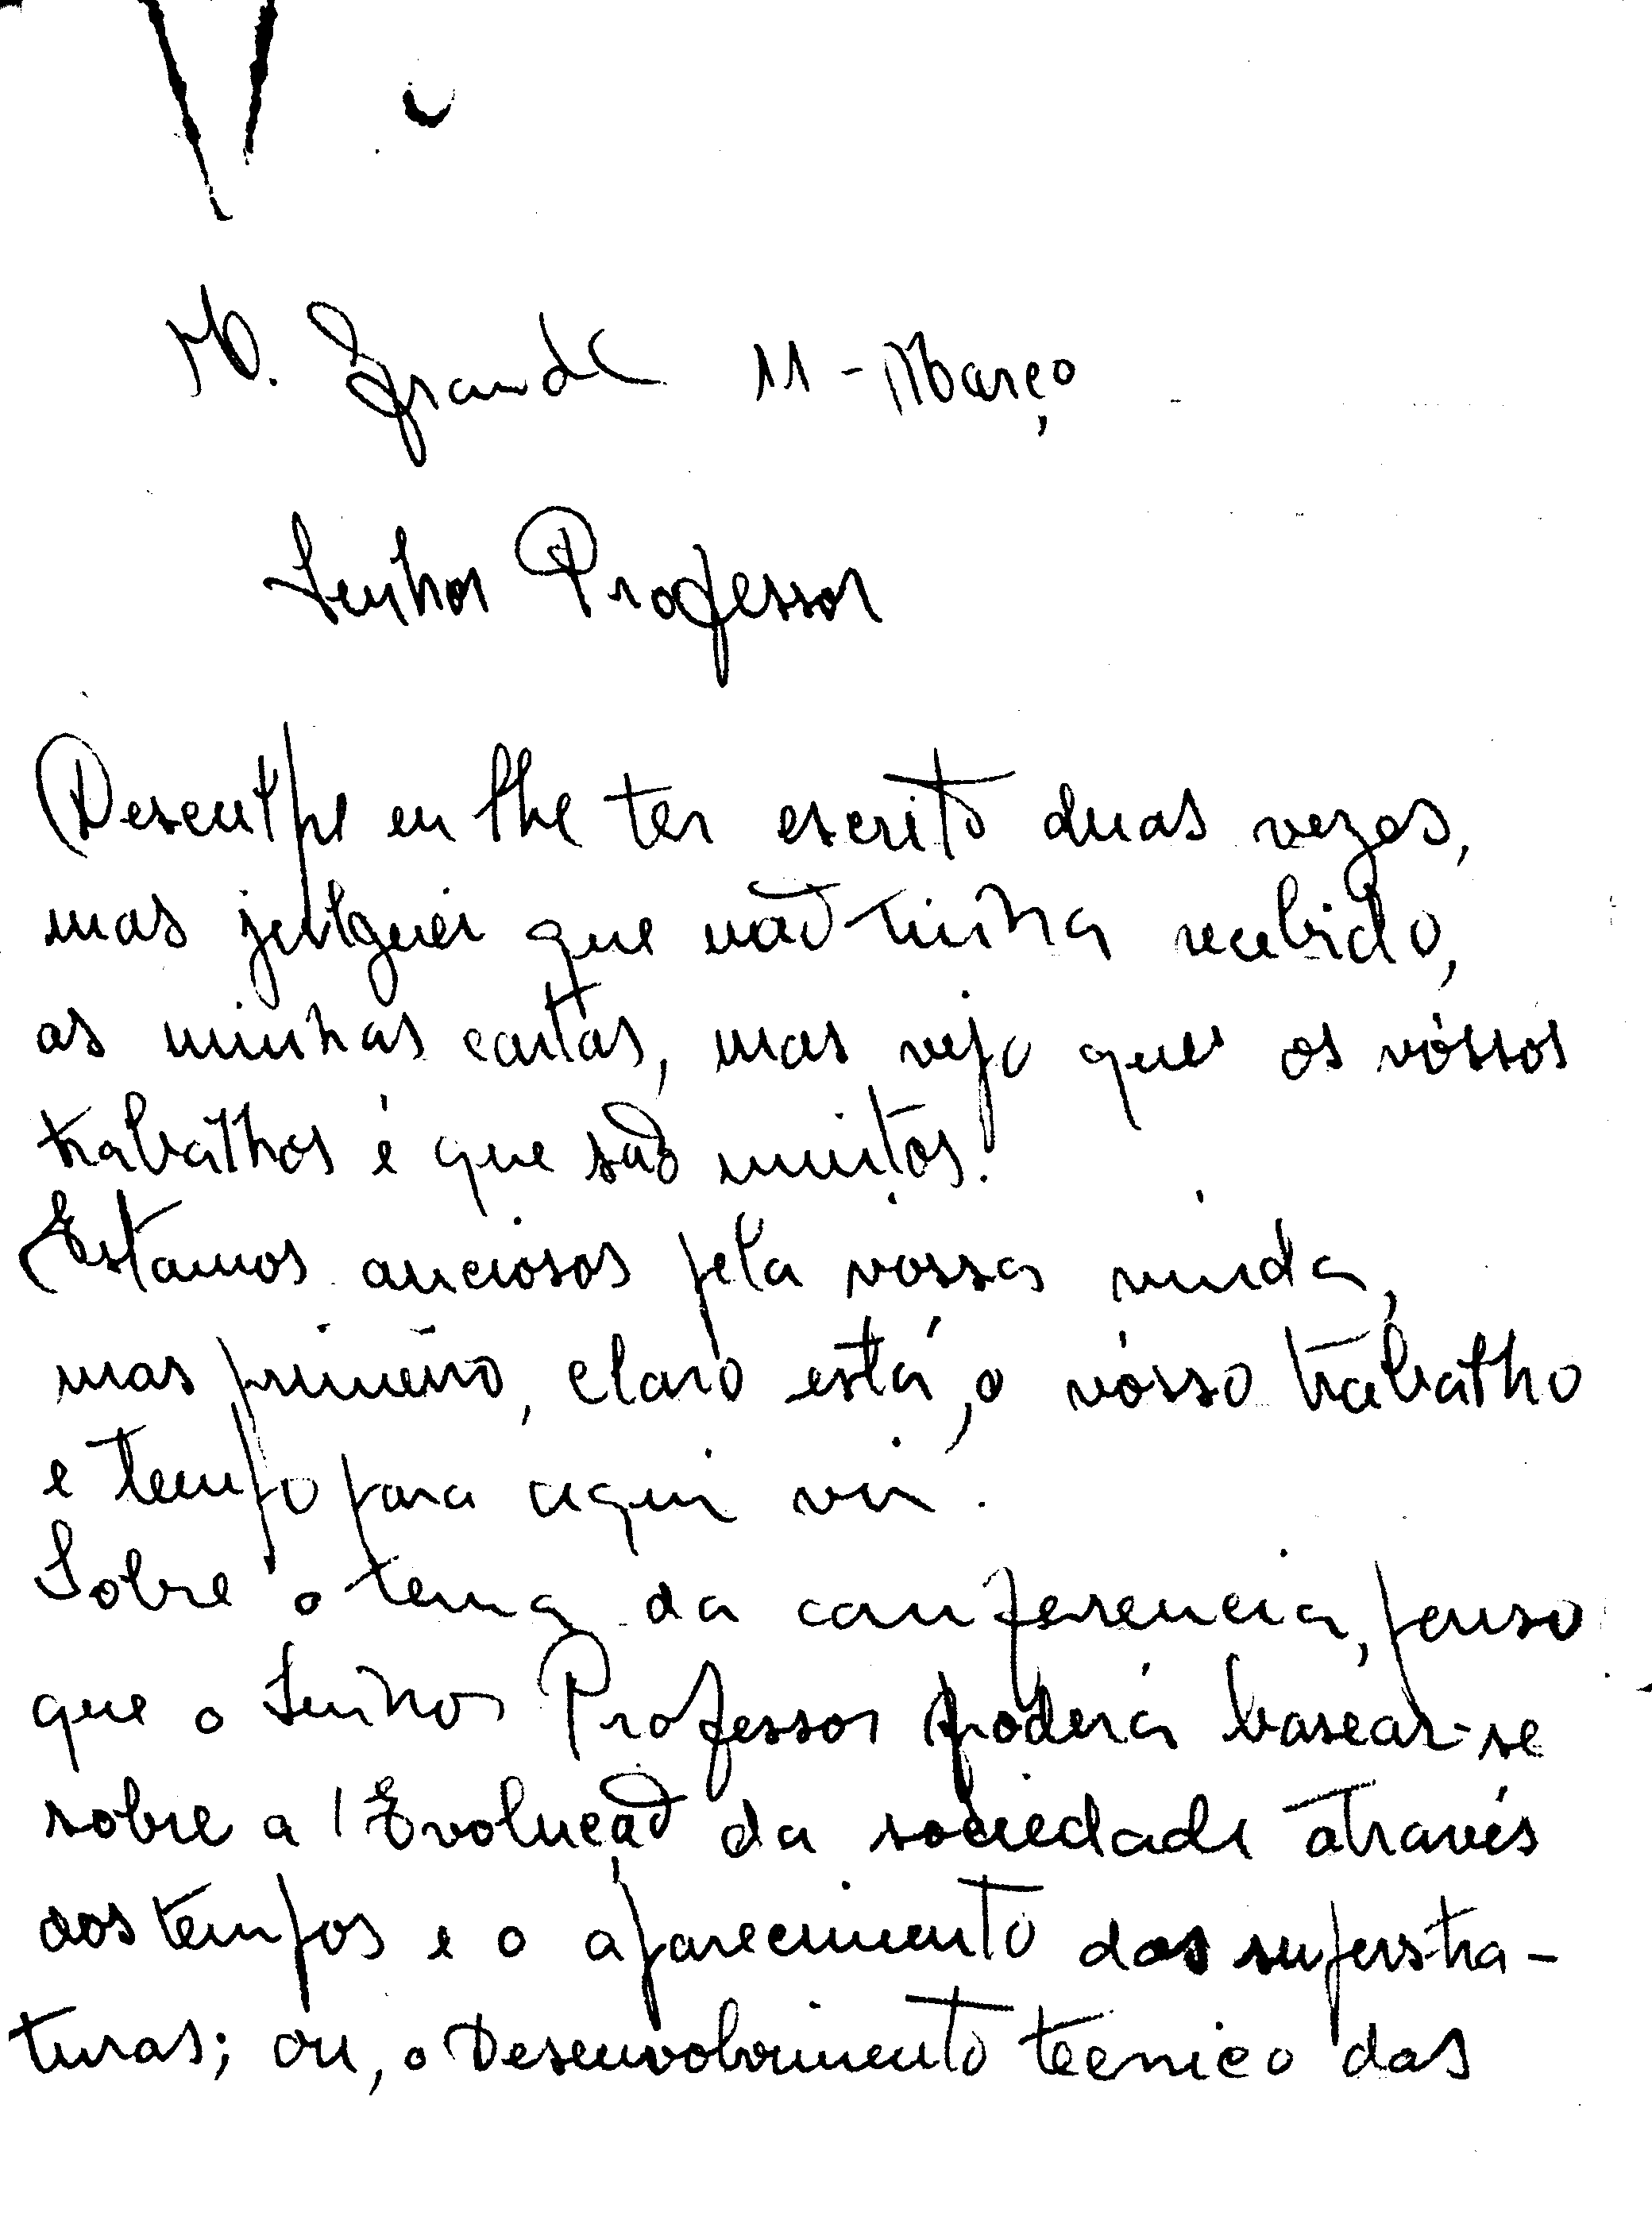 M. Grande 11-Março
Senhor Professor
Desculpe eu lhe ter escrito duas vezes,
mas julguei que não tinha recebido,
as minhas cartas, mas vejo que os vóssos
trabalhos é que são muitos.
Estamos anciosos pela vossa vinda,
mas primeiro, claro está, o vósso trabalho
e tempo para aqui vir.
Sobre o tema da conferencia, penso
que o Senhor Professor poderá basear-se
sobre a Evolução da sociedade através
dos tempos e o aparecimento das superstra-
turas; ou, o Desenvolvimento tecnico das